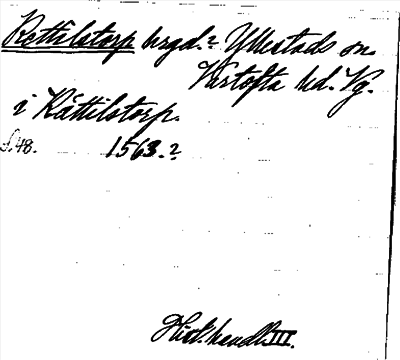 Kettilstorp brgd.? Yllestads sn.
Vartofta hd. Vg.
i Kättilstorp.
s. 48. 1563.?
Hist. handl. III.